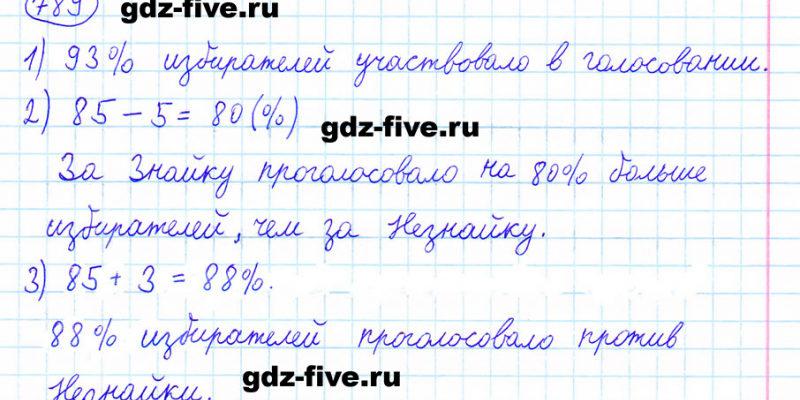 789
gdz-five.ru
1) 93% избирателей участвовало в голосовании.
2) 85 - 5 = 80 (%)
gdz-five.ru
За Знайку проголосовало на 80% больше
избирателей, чем за Незнайку.
3) 85 + 3 = 88%.
88% избирателей проголосовало против
Незнайки.
gdz-five.ru